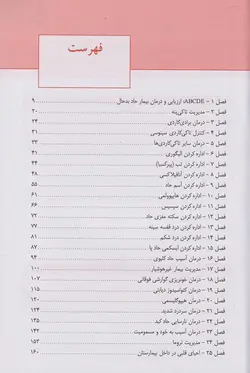 فهرست
فصل ۱ - ABCDE: ارزیابی و درمان بیمار حاد بدحال ۹
فصل ۲ - مدیریت تاکی‌پنه ۲۰
فصل ۳ - درمان برادی‌کاردی ۲۴
فصل ۴ - کنترل تاکی‌کاردی سینوسی ۳۱
فصل ۵ - درمان سایر تاکی‌کاردی‌ها ۳۳
فصل ۶ - اداره کردن الیگوری ۴۱
فصل ۷ - اداره کردن تب (پیرکسیا) ۴۴
فصل ۸ - اداره کردن آنافیلاکسی ۴۸
فصل ۹ - اداره کردن آسم حاد ۵۵
فصل ۱۰ - اداره کردن هایپوولمی ۶۱
فصل ۱۱ - اداره کردن سپسیس ۶۶
فصل ۱۲ - اداره کردن سکته مغزی حاد ۷۲
فصل ۱۳ - اداره کردن درد قفسه سینه ۷۷
فصل ۱۴ - اداره کردن درد شکم ۸۱
فصل ۱۵ - اداره کردن ایسکمی حاد پا ۸۷
فصل ۱۶ - درمان آسیب حاد کلیوی ۹۴
فصل ۱۷ - مدیریت بیمار غیرهوشیار ۱۰۰
فصل ۱۸ - درمان خونریزی گوارشی فوقانی ۱۰۷
فصل ۱۹ - درمان کتواسیدوز دیابتی ۱۱۵
فصل ۲۰ - درمان هیپوگلیسمی ۱۲۰
فصل ۲۱ - درمان سردرد شدید ۱۲۵
فصل ۲۲ - درمان نارسایی حاد کبد ۱۳۵
فصل ۲۳ - درمان آسیب به خود و مسمومیت ۱۴۲
فصل ۲۴ - مدیریت تروما ۱۵۳
فصل ۲۵ - احیای قلبی در داخل بیمارستان ۱۶۰